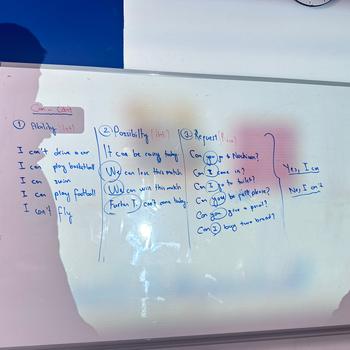 Can - Can't
① Ability
I can't drive a car
I can play basketball
I can swim
I can play football
I can't fly
② Possibility
It can be rainy today
We can lose this match
We can win this match
Furkan can't come today
③ Request
Can you go to
Can I come in?
Can I go to toilet?
Can you be fast please?
Can you give a
Can I buy two bread?
Yes, I can
No, I can't